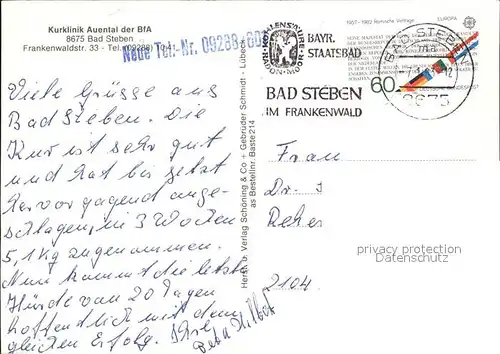 Kurklinik Auental der BfA
8675 Bad Steben
Frankenwaldstr. 33 - Tel. (09288) 1041
Neue Tel.-Nr. 09288
BAYR.
STAATSBAD
BAD STEBEN
IM FRANKENWALD
1957-1982 Römische Verträge
EUROPA
60
DEUTSCHE BUNDESPOST
BAD STEBEN
8675
Viele Grüsse aus
Bad Steben. Die
Kur ist sehr gut
und hat bis jetzt
hervorragend ange-
schlagen, in 3 Wochen
5,1 kg zugenommen.
Nun kommt die letzte
Hürde von 20 Tagen
hoffentlich mit dem
gleichen Erfolg. Ihre
Herst. u. Verlag Schöning & Co + Gebrüder Schmidt - Lübeck
as Bestellnr. Baste 214
Frau
Dr.
2104
privacy protection
by AnsichtskartenCenter